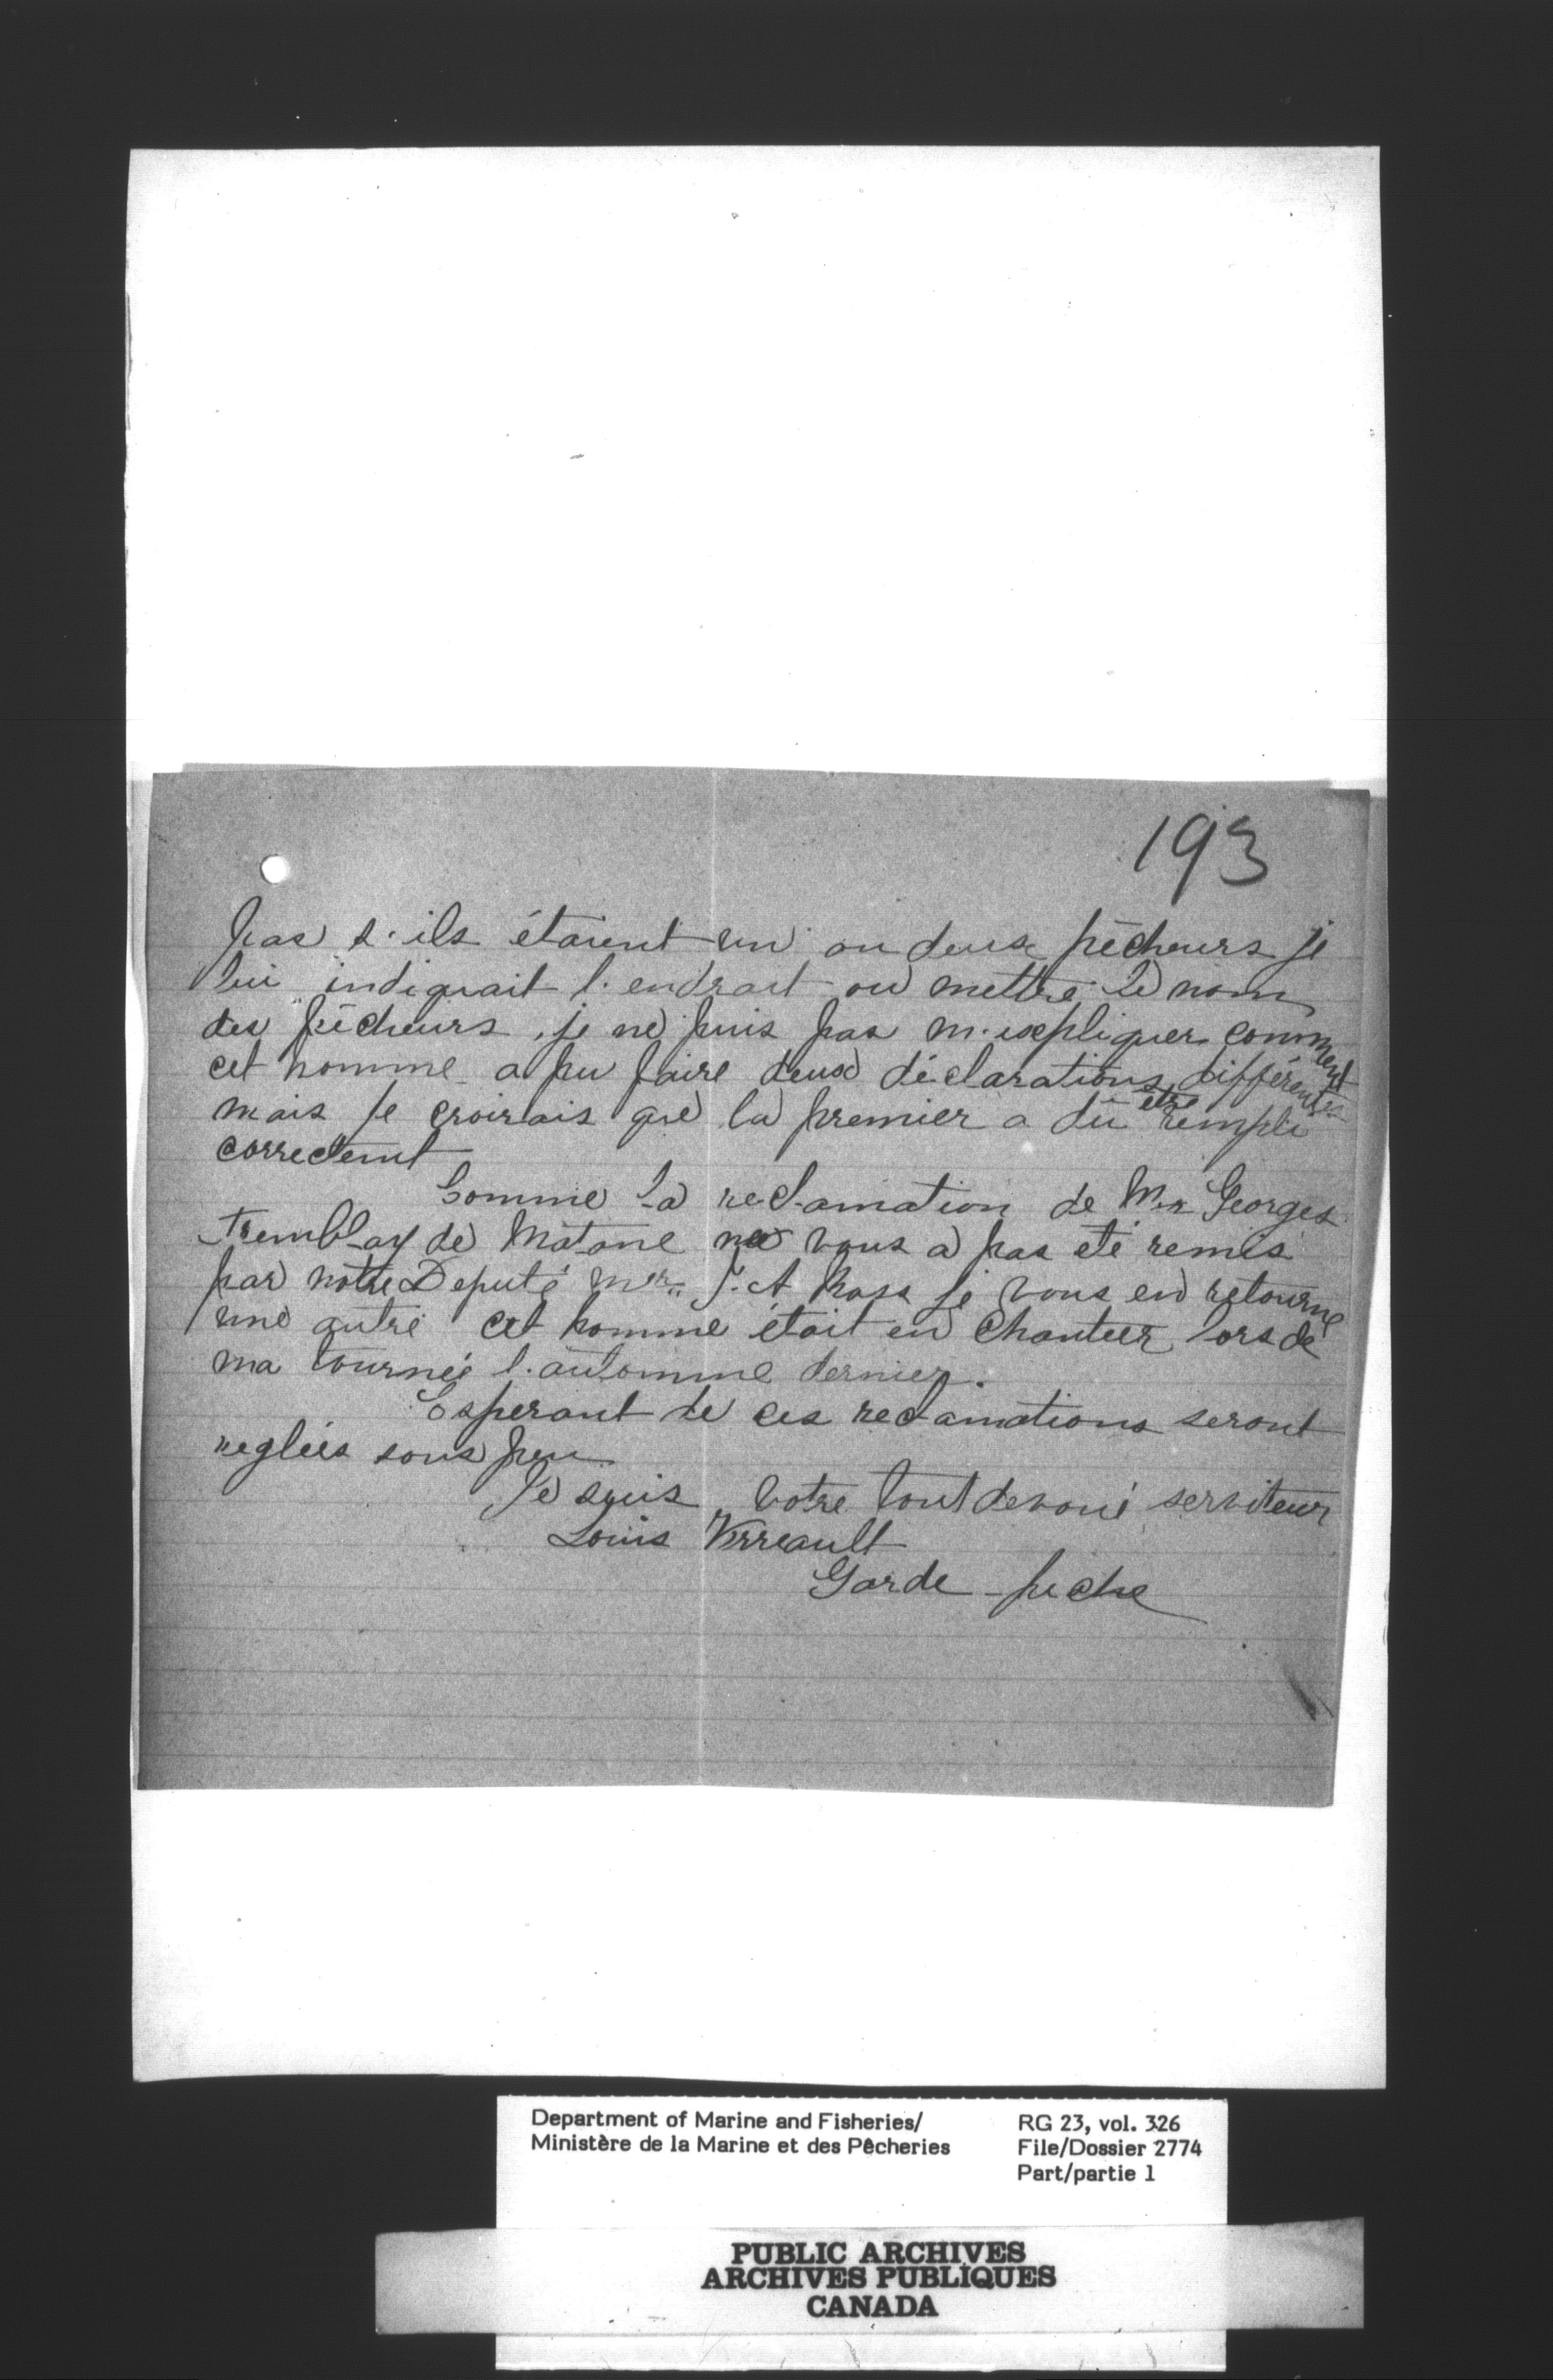 193
pas s'ils étaient un ou deux pêcheurs je
lui indiquait l'endrait ou mettre le nom
des pêcheurs, je ne puis pas m'expliquer comment
cet homme a pu faire deux déclarations différentes
mais je croirais que la premier a dû être rempli
correctemt
Comme la reclamation de Mr Georges
Tremblay de Matane ne vous a pas eté remis
par notre Deputé Mr J. A Ross je vous en retourne
une autre cet homme était en Chantier lors de
ma tournée l'automne dernier.
Esperant de ces reclamations seront
reglées sous peu
Je suis votre tout devoué serviteur
Louis Verreault
Garde-peche
Department of Marine and Fisheries/
Ministère de la Marine et des Pêcheries
RG 23, vol. 326
File/Dossier 2774
Part/partie 1
PUBLIC ARCHIVES
ARCHIVES PUBLIQUES
CANADA